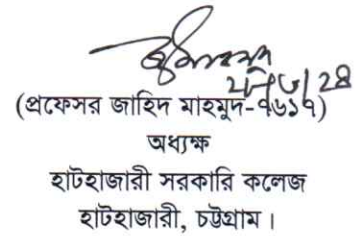 (প্রফেসর জাহিদ মাহমুদ-৭৬১৭)
অধ্যক্ষ
হাটহাজারী সরকারি কলেজ
হাটহাজারী, চট্টগ্রাম।